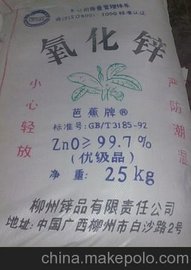 氧化锌
芭蕉牌®
标准号:GB/T3185-92
ZnO≥99.7%
(优级品)
净重:25kg
小心轻放
严防潮湿
柳州锌品有限责任公司
地址:中国广西柳州市白沙路2号